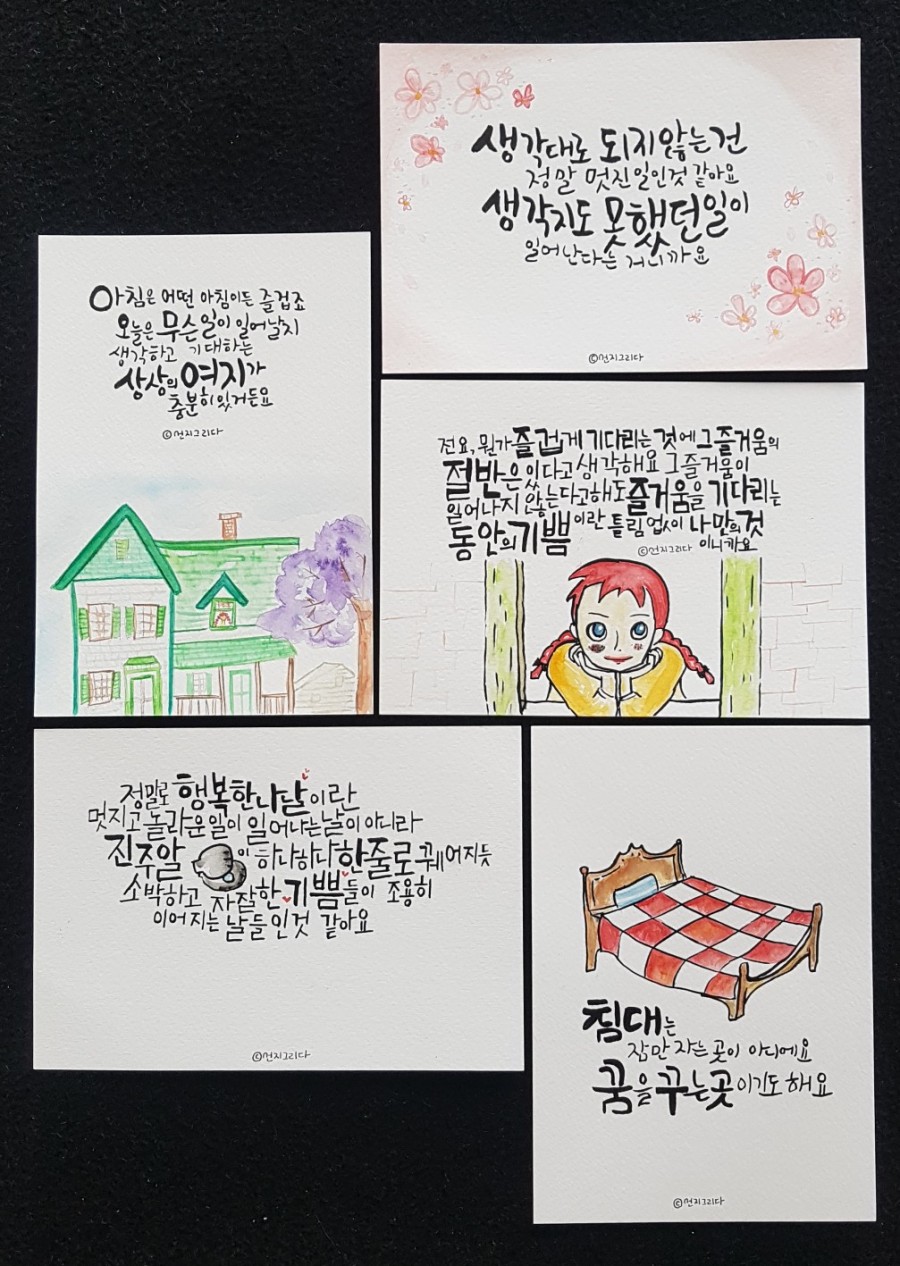 생각대로 되지 않는 건
정말 멋진 일인것 같아요
생각지도 못했던일이
일어난다는 거니까요
©먼지그리다
아침은 어떤 아침이든 즐겁죠
오늘은 무슨일이 일어날지
생각하고 기대하는
상상의 여지가
충분히있거든요
©먼지그리다
전요, 뭔가 즐겁게 기다리는 것에 그 즐거움의
절반은 있다고 생각해요 그 즐거움이
일어나지 않는다고해도 즐거움을 기다리는
동안의 기쁨이란 틀림없이 나만의 것
이니까요
©먼지그리다
정말로 행복한 나날이란
멋지고 놀라운 일이 일어나는 날이 아니라
진주알이 하나하나 한줄로 꿰어지듯
소박하고 자잘한 기쁨들이 조용히
이어지는 날들인것 같아요
©먼지그리다
침대는
잠만 자는 곳이 아니에요
꿈을 꾸는 곳이기도 해요
©먼지그리다